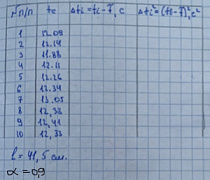 № п/п tc Δti = ti - t̄, c Δti² = (ti - t̄)², c²
1 12.09
2 12.19
3 11.88
4 12.11
5 12.26
6 12.34
7 12.05
8 12,32
9 12,41
10 12,33
l = 41,5 см.
α = 0,9